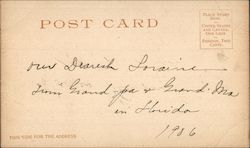 POST CARD
PLACE STAMP HERE
UNITED STATES AND CANADA, ONE CENT
FOREIGN, TWO CENTS.
Our Dearest Loraine
From Grand-pa & Grand-Ma
in Florida
1906
THIS SIDE FOR THE ADDRESS